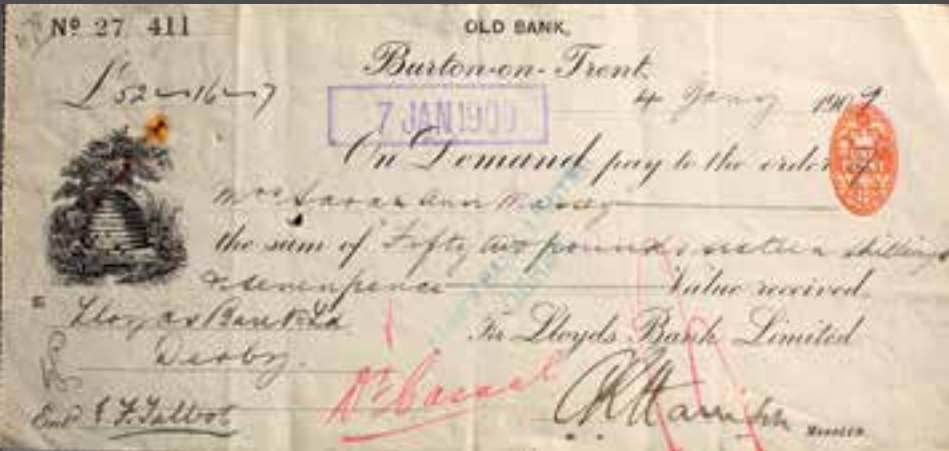 Nº 27 411
OLD BANK,
Burton-on-Trent
£52-16-7
4 Jany 1909
7 JAN 1909
On Demand pay to the order of
Mrs Sarah Ann
the sum of Fifty two pounds sixteen shillings
& sevenpence Value received,
Lloyds Bank Ld
For Lloyds Bank Limited
Derby.
Ent F. Talbot
Harrison
MANAGER